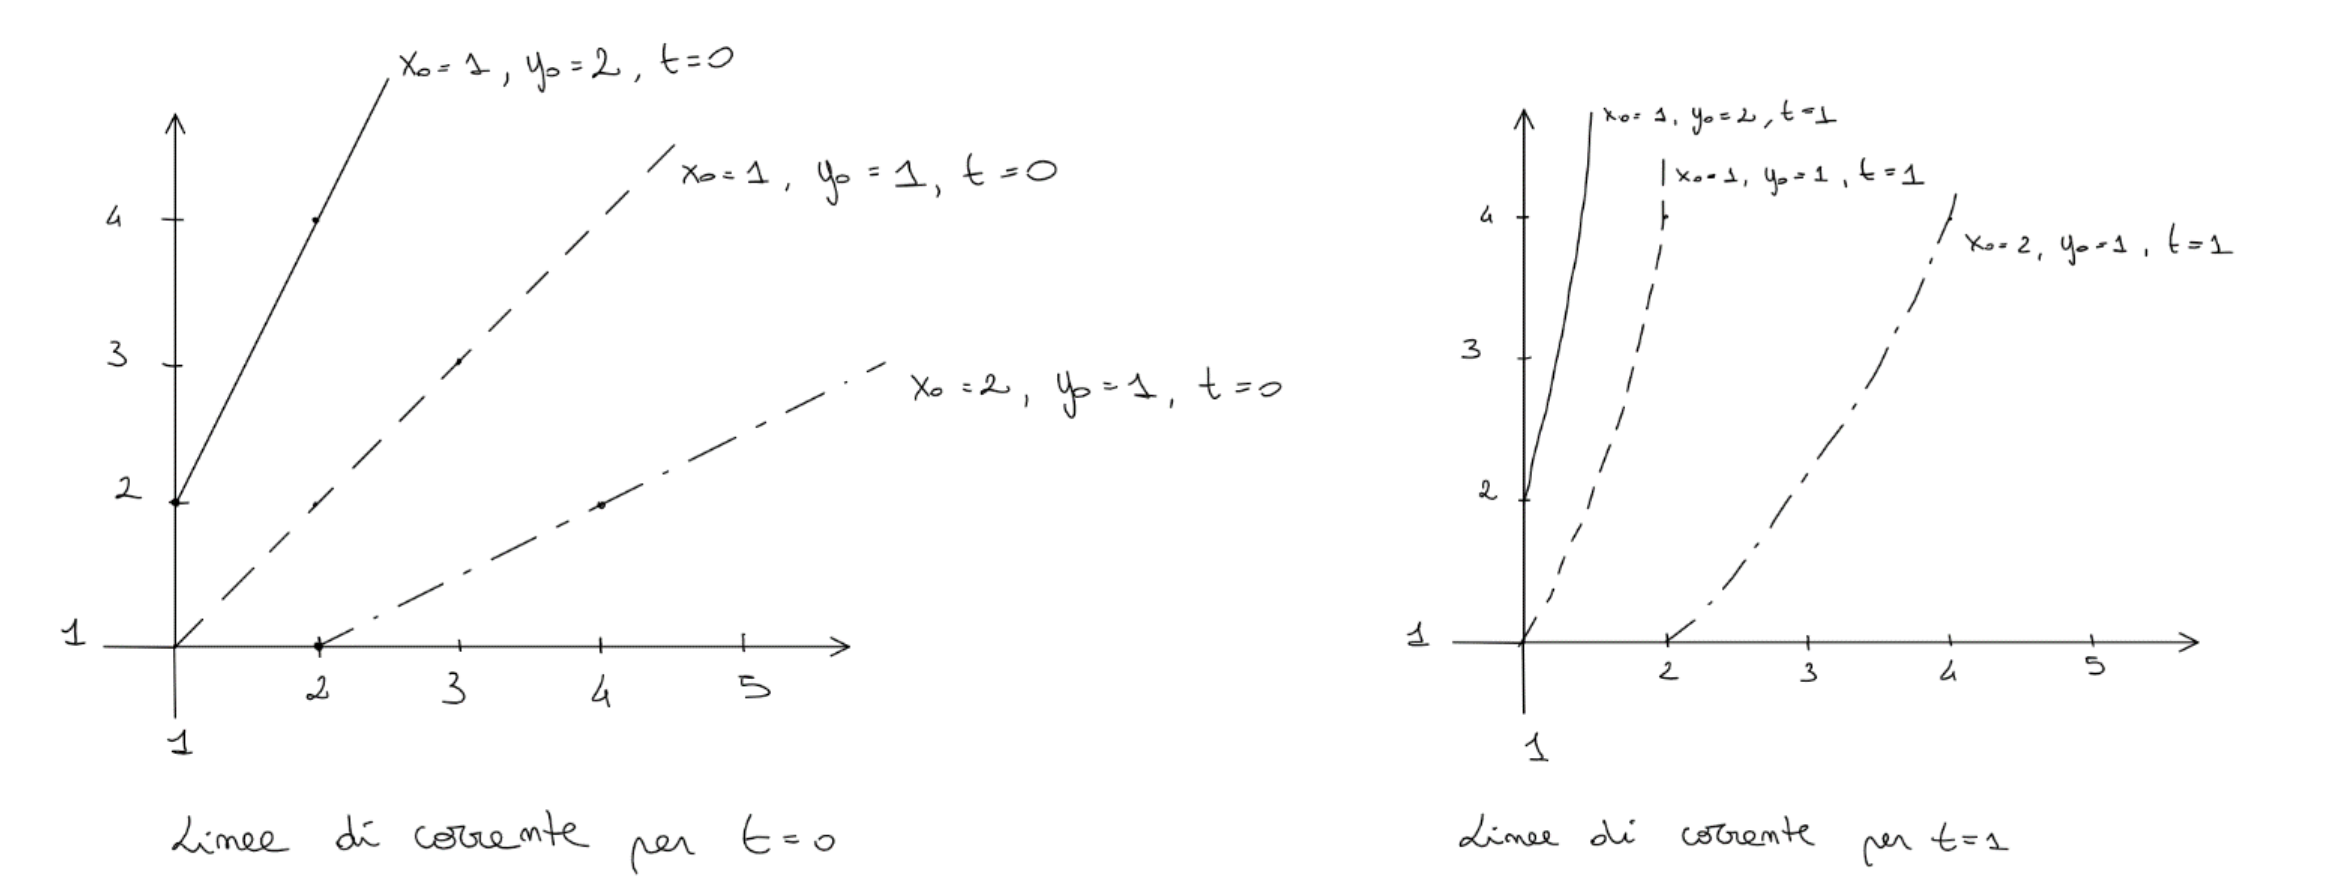 x₀=1, y₀=2, t=0
x₀=1, y₀=1, t=0
x₀=2, y₀=1, t=0
4
3
2
1
2 3 4 5
1
Linee di corrente per t=0
x₀=1, y₀=2, t=1
x₀=1, y₀=1, t=1
x₀=2, y₀=1, t=1
4
3
2
1
2 3 4 5
1
Linee di corrente per t=1